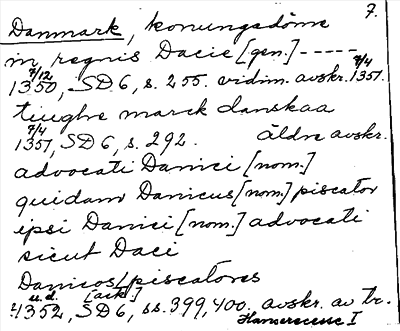 7.
Danmark, konungadöme
in regnis Dacie [gen.] -----
7/12 1350, SD 6, s. 255. vidim. avskr. 7/4 1351.
tiughe marck danskaa
7/4 1351, SD 6, s. 292. äldre avskr.
advocati Danici [nom.]
quidam Danicus [nom.] piscator
ipsi Danici [nom.] advocati
sicut Daci
Danicos [ack.] piscatores
u.d. 1352, SD 6, ss. 399, 400. avskr. av tr.
Hanserecesse I